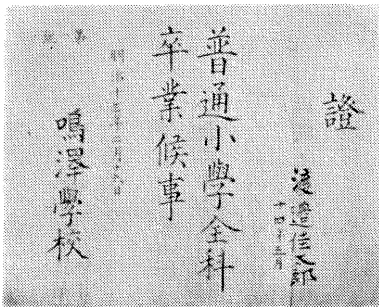 證
渡邉佳太郎
十四年三月
普通小學全科
卒業候事
明治十三年十二月廿六日
鳴澤學校